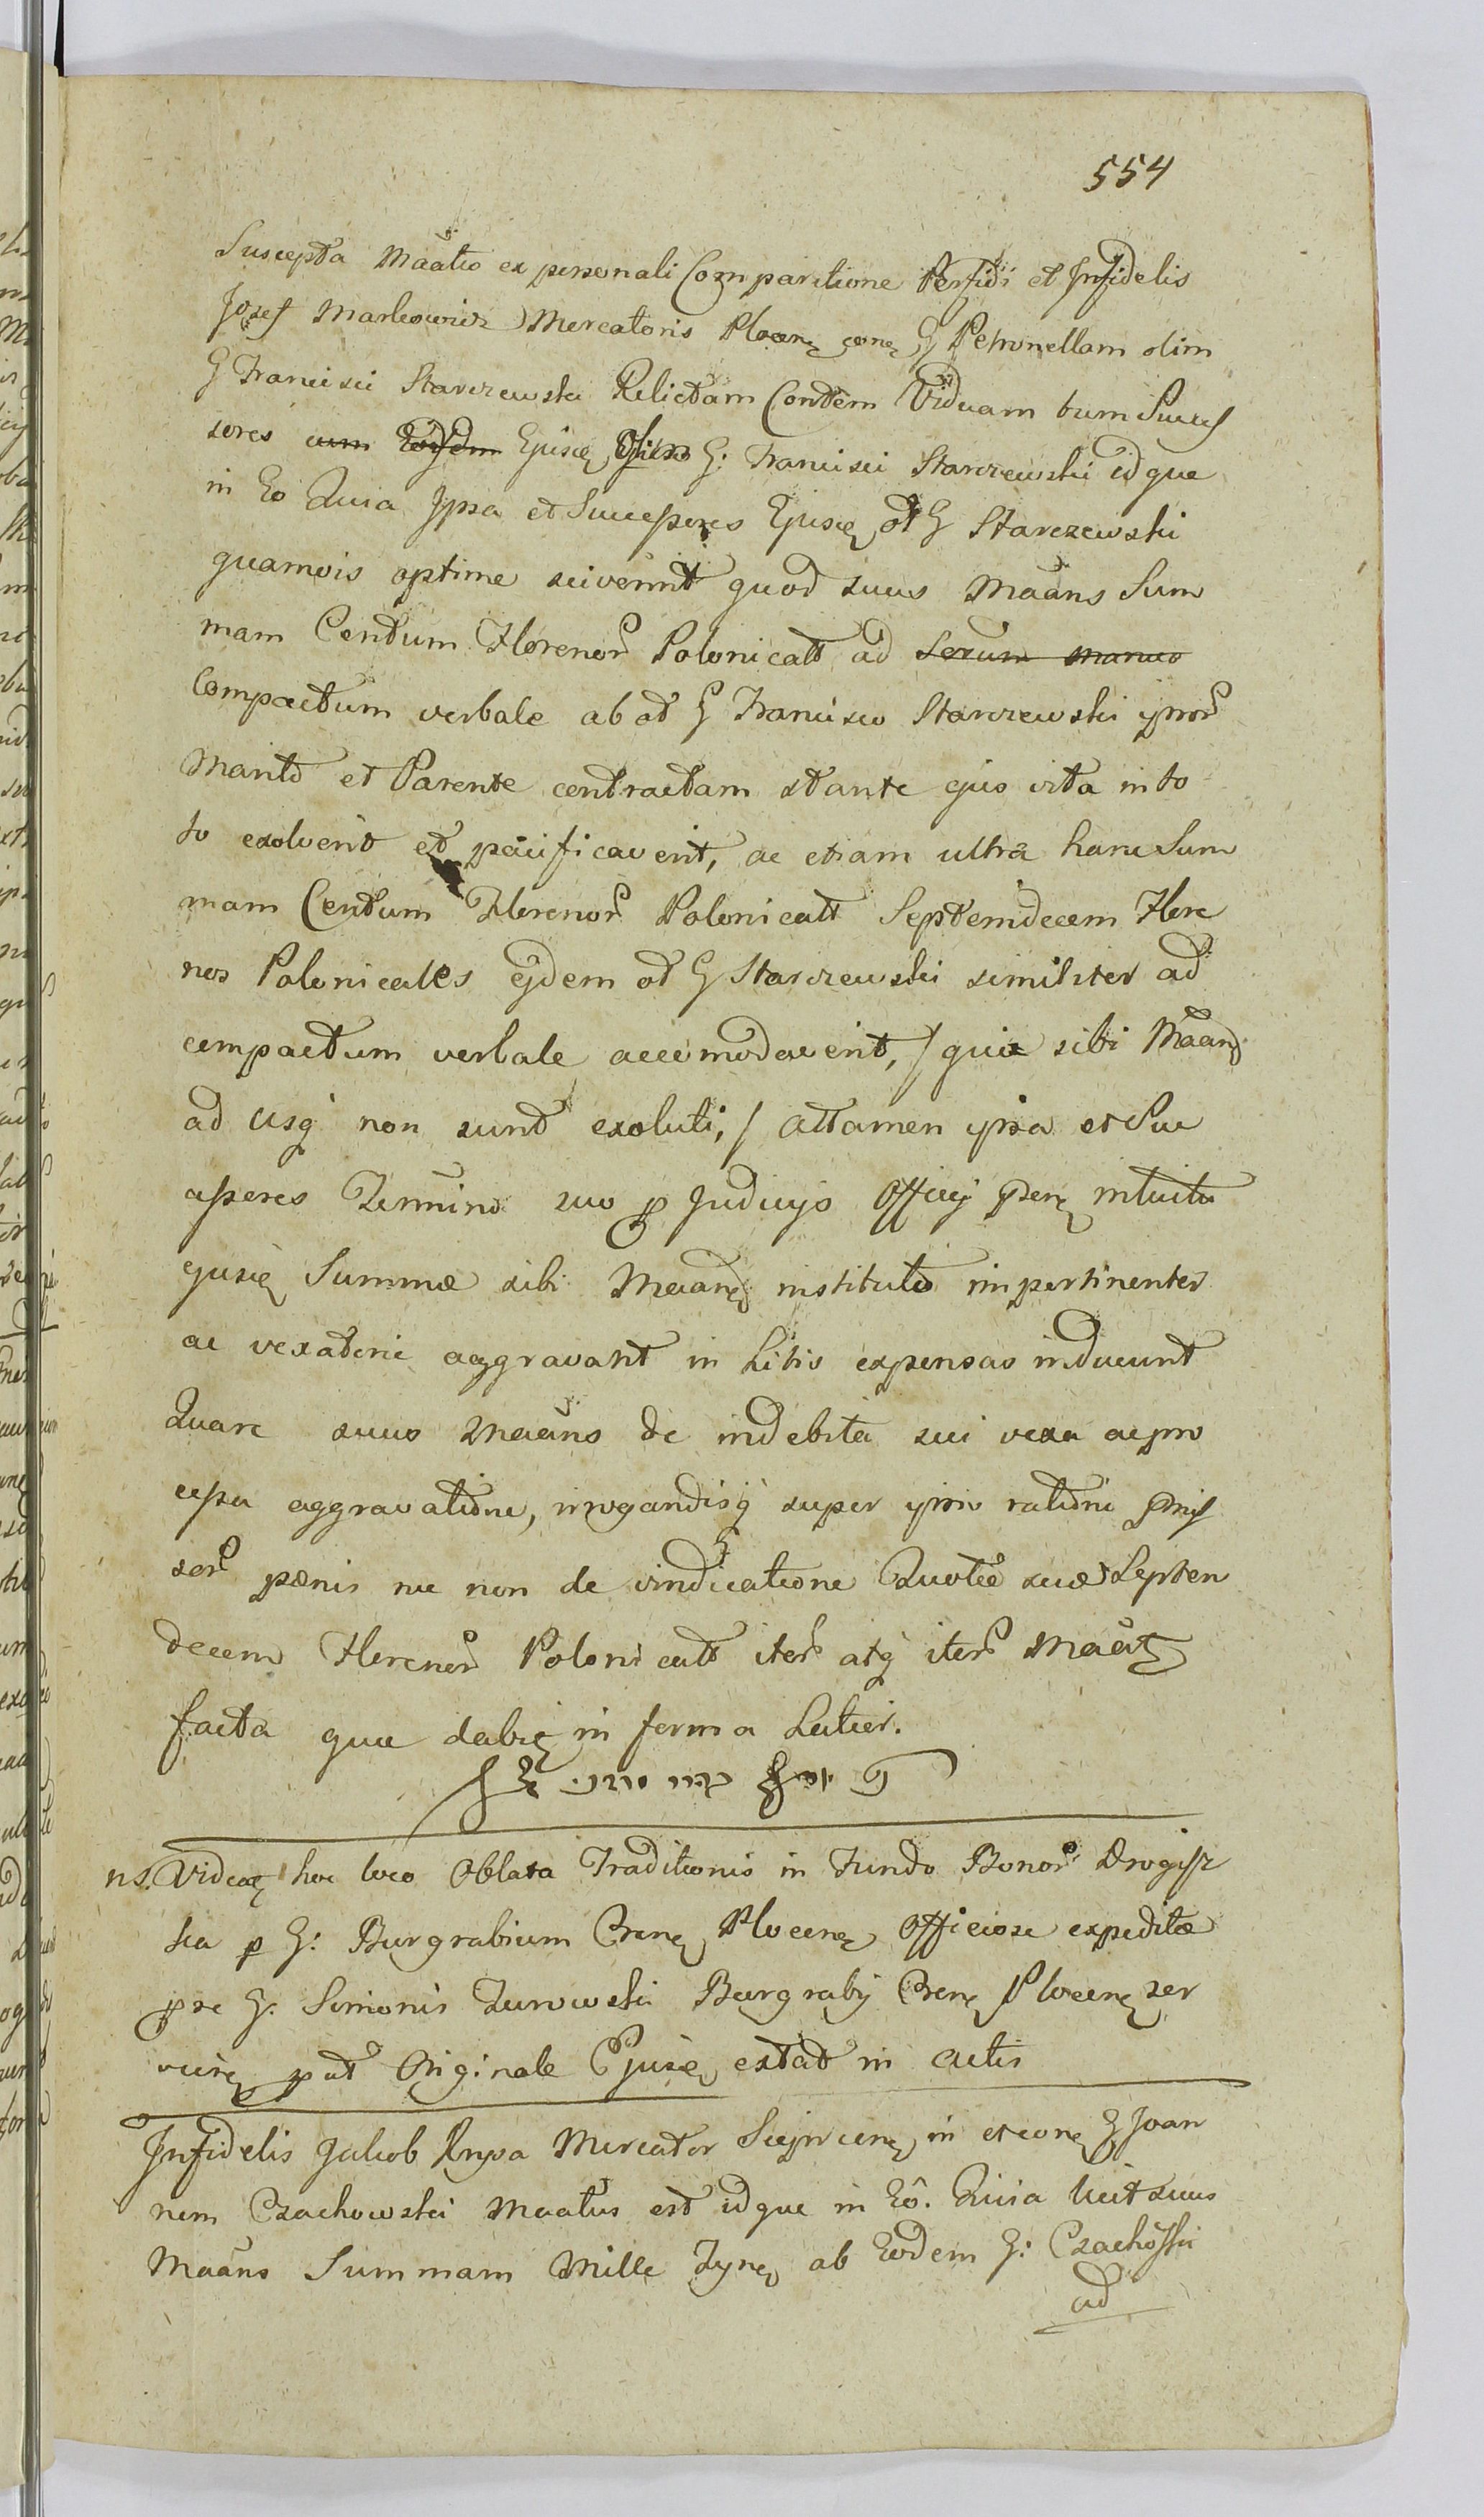 554
Suscepta Maãtio ex personali Comparitione Perfidi et Infidelis
Josef Markowicz Mercatoris Plocen cone G Petronellam olim
G Francisci Starczewski Relictam Contem Viduam tum Success
sores cum Eorsdem Ejusd G: Francisci Starczewski idque
in Eo Quia Ipsa et Successores Ejusd ol G Starczewski
quamvis optime sciverint quod suus Maãns Sum
mam Centum Florenor Polonicall ad
Compactum verbale ab ol G Francisco Starczewski ipsor
Marito et Parente contractam stante ejus vita in to
to exolverit et pacificaverit, ac etiam ultra hanc Sum
mam Centum Florenor Polonicall Septemdecem Flore
nos Polonicales ejdem ol G Starczewski similiter ad
compactum verbale accomodaverit, / qui sibi Maand
ad usq non sunt exoluti, / attamen ipsa et Suc
cessores Termino suo p Judicijs Officij psen intuitu
ejusd Summæ sibi Maand instituto impertinenter
ac vexatorie aggravant in Litis expensas inducunt
Quare suus Maãns de indebita sui vexa ac pro
cessu aggravatione, irrogandisq super ipsos ratione pmis
sor pænis nec non de vindicatione Quotæ suæ Septen
decem Florenor Polonicall iter atq iter Maãt
facta quæ dabit in forma Latior.
ns. Videat hoc loco Oblata Traditionis in Fundo Bonor Drogisz
ka p G: Burgrabium Cren Plocen Officiose expeditæ
pse G. Simonis Zurowski Burgrabij Cren Plocen ser
vien put Originale Ejusd extat in Actis
Infidelis Jakob Mercator Sierpcen in et cone G Joan
nem Czachowski Maatus est idque in Eô. Quia licet suus
Maãns Summam Mille Tynf ab Eodem G: Czachoski
ad